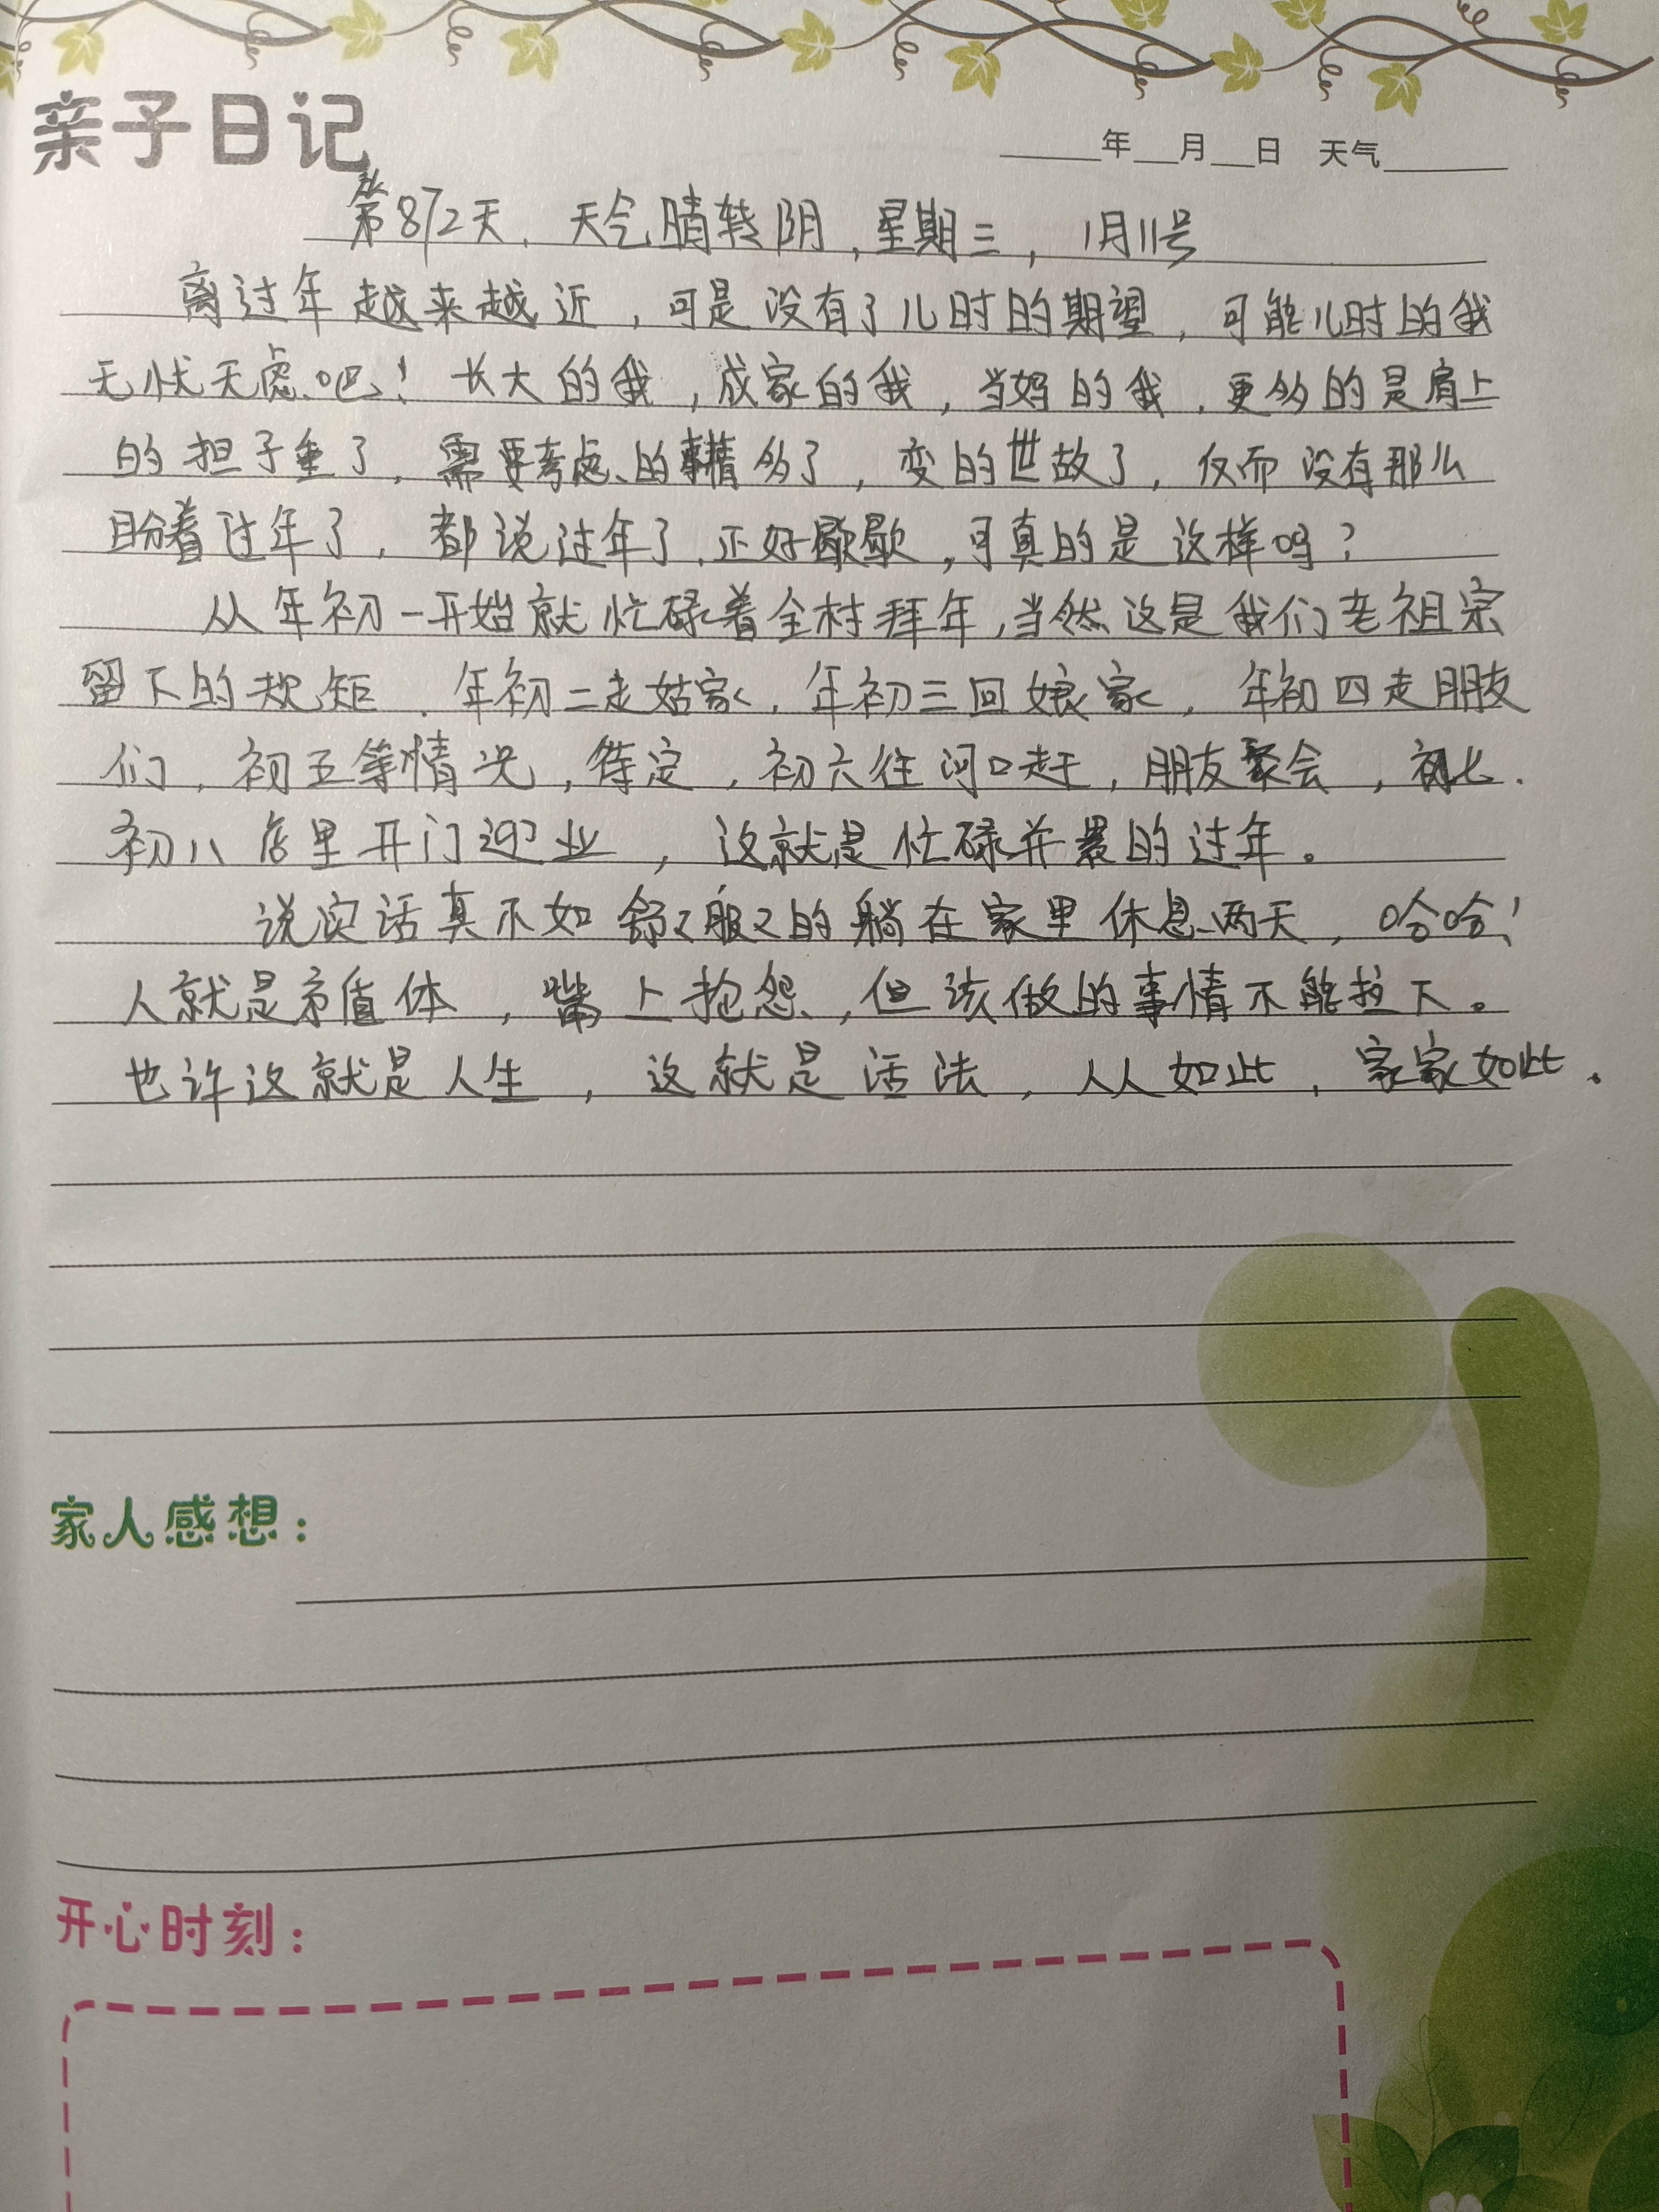 亲子日记
____年__月__日 天气____
第872天，天气晴转阴，星期三，1月11号
离过年越来越近，可是没有了儿时的期望，可能儿时的我
无忧无虑吧！长大的我，成家的我，当妈的我，更多的是肩上
的担子重了，需要考虑的事情多了，变的世故了，仅而没有那么
盼着过年了，都说过年了，正好歇歇，可真的是这样吗？
从年初一开始就忙碌着全村拜年，当然这是我们老祖宗
留下的规矩．年初二走姑家，年初三回娘家，年初四走朋友
们，初五等情况，待定，初六往河口赶，朋友聚会，初七．
初八店里开门迎业，这就是忙碌并累的过年。
说实话真不如舒々服々的躺在家里休息两天，哈哈！
人就是矛盾体，嘴上抱怨，但该做的事情不能拉下。
也许这就是人生，这就是活法，人人如此，家家如此．
家人感想：
开心时刻：